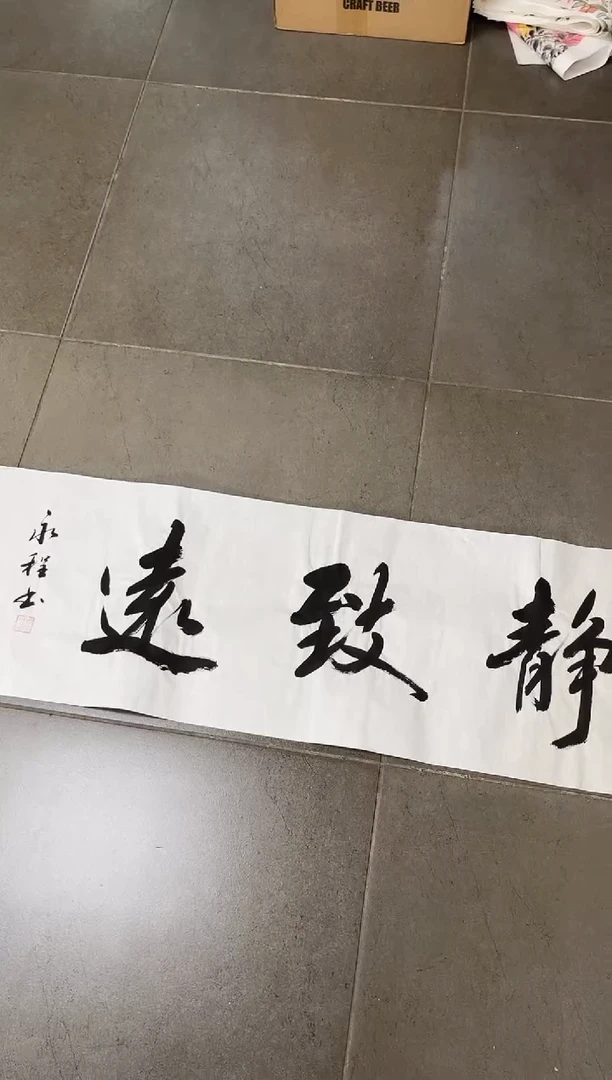 CRAFT BEER
静致遠
永程书